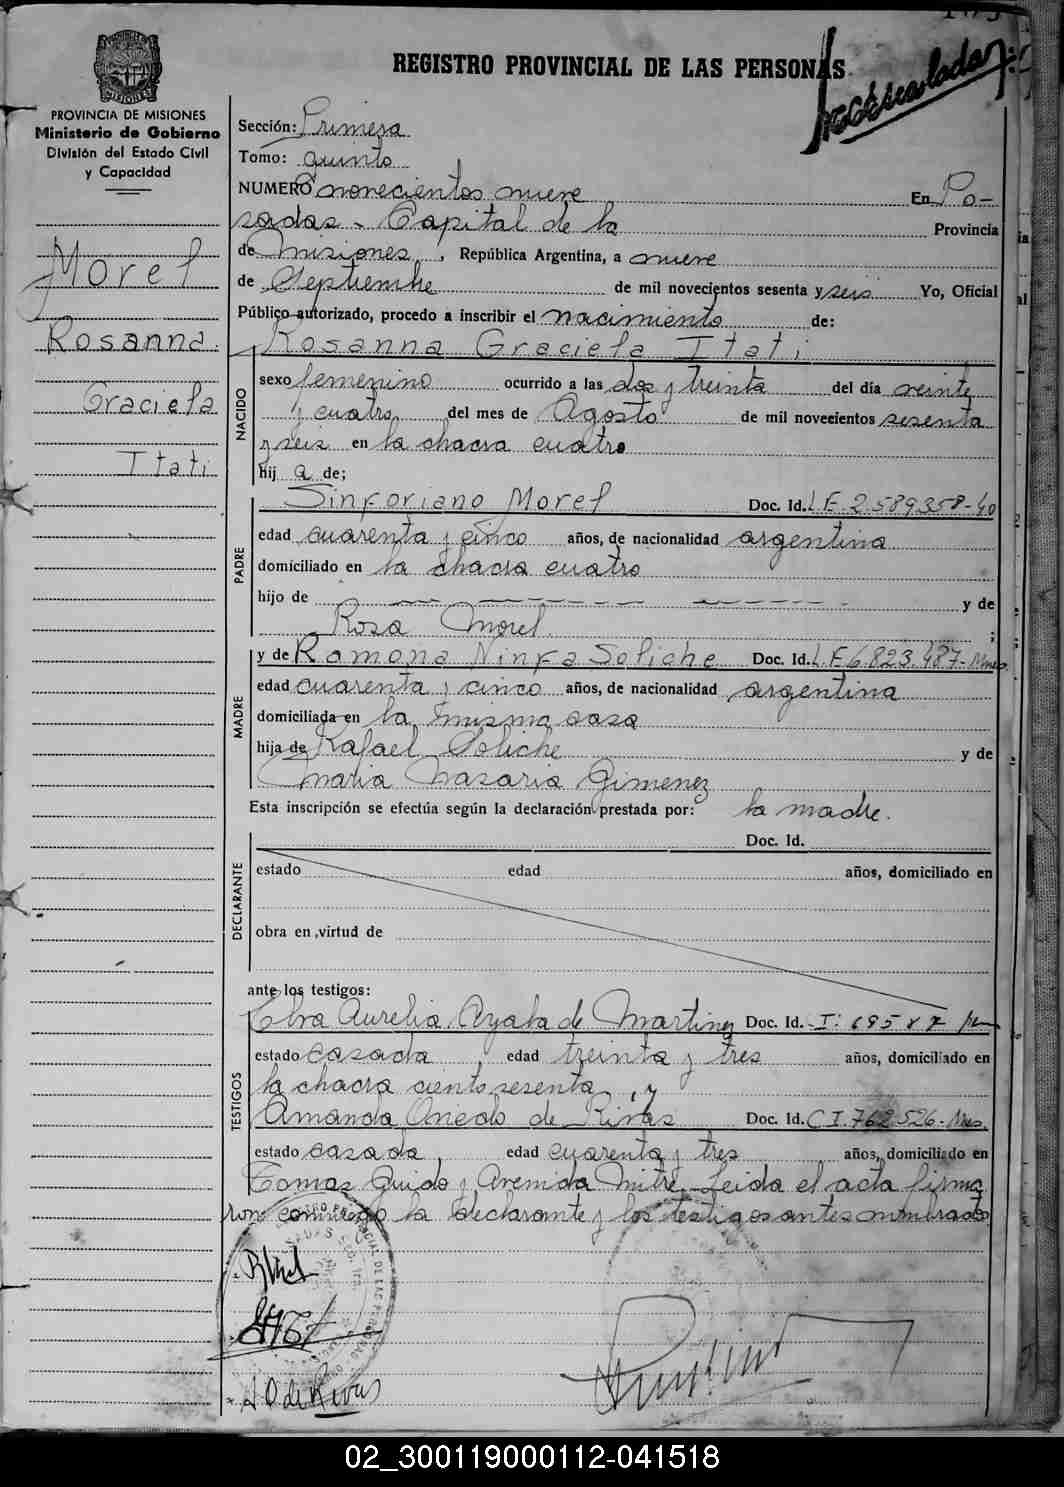 REGISTRO PROVINCIAL DE LAS PERSONAS
PROVINCIA DE MISIONES
Ministerio de Gobierno
División del Estado Civil
y Capacidad
Morel
Rosanna
Graciela
Itati
Sección: Primera
Tomo: quinto
NUMERO novecientos nueve En Po-
sadas - Capital de la Provincia
de Misiones, República Argentina, a nueve
de Septiembre de mil novecientos sesenta y seis Yo, Oficial
Público autorizado, procedo a inscribir el nacimiento de:
Rosanna Graciela Itati
NACIDO
sexo femenino ocurrido a las dos y treinta del día veinte
y cuatro del mes de Agosto de mil novecientos sesenta
y seis en la chacra cuatro
hij a de;
PADRE
Sinforiano Morel Doc. Id. L.E. 2.589.358-40
edad cuarenta y cinco años, de nacionalidad argentina
domiciliado en la chacra cuatro
hijo de y de
Rosa Morel ;
MADRE
y de Ramona Ninfa Soliche Doc. Id. L.F. 6.823.487-Mnes
edad cuarenta y cinco años, de nacionalidad argentina
domiciliada en la misma casa
hija de Rafael Soliche y de
Maria Nasaria Gimenez
Esta inscripción se efectúa según la declaración prestada por: la madre.
DECLARANTE
Doc. Id.
estado edad años, domiciliado en
obra en virtud de
ante los testigos:
TESTIGOS
Elva Aurelia Ayala de Martinez Doc. Id.
estado casada, edad treinta y tres años, domiciliado en
la chacra ciento sesenta, y
Amanda Onedo de Rivas Doc. Id. C I. 762.526-Mnes.
estado casada, edad cuarenta y tres años, domiciliado en
Tomas Guido y Avenida Mitre. Leida el acta firma
ron conmigo la declarante y los testigos antes nombrados
A O de Rivas
02_300119000112-041518